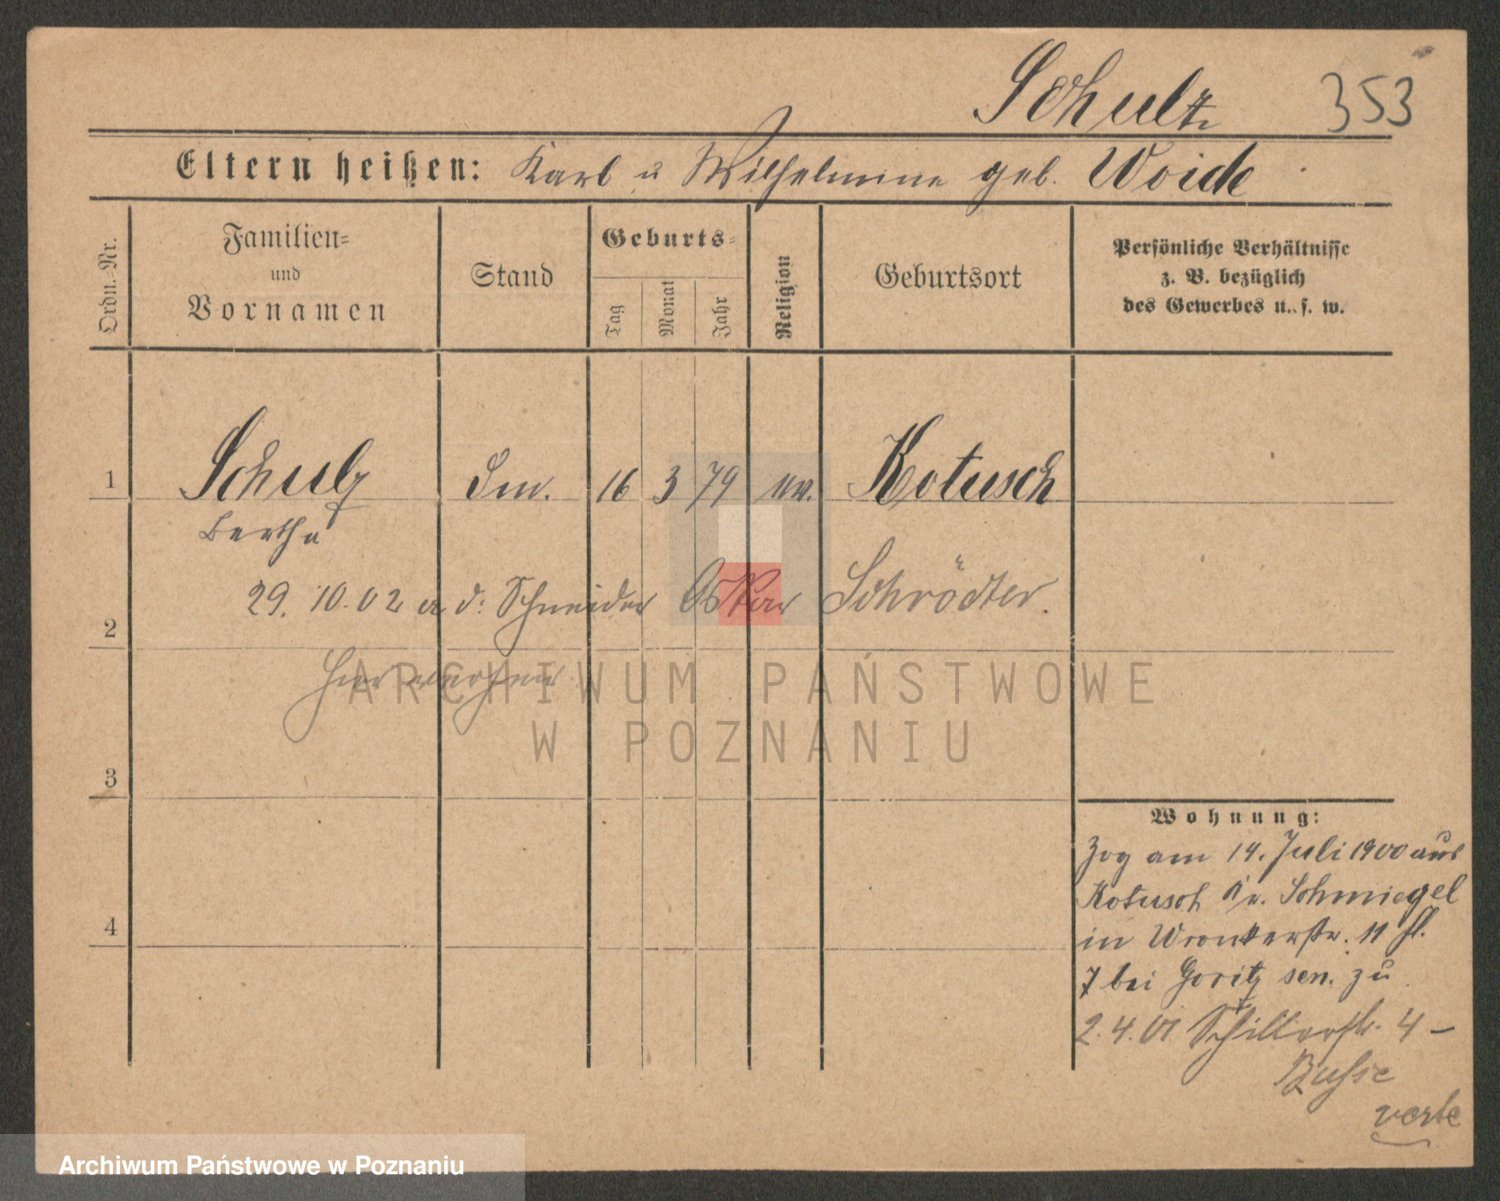 Schultz 353
Eltern heißen: Karl u Wilhelmine geb. Woide
Ordn.-Nr.
Familien-
und
Vornamen
Stand
Geburts-
Tag
Monat
Jahr
Religion
Geburtsort
Persönliche Verhältnisse
z. B. bezüglich
des Gewerbes u. s. w.
1 Schulz 16 3 79 ev. Kotusch
Bertha
29. 10. 02 a d: Schneider Oskar Schrödter.
2
3
4
Wohnung:
Zog am 14. Juli 1900 aus
Kotusch Kr. Schmiegel
in Wronkerstr. 11
7 bei Goritz sen. zu
2. 4. 01 Schillerstr. 4 –
Busse
verte
ARCHIWUM PAŃSTWOWE
W POZNANIU
Archiwum Państwowe w Poznaniu